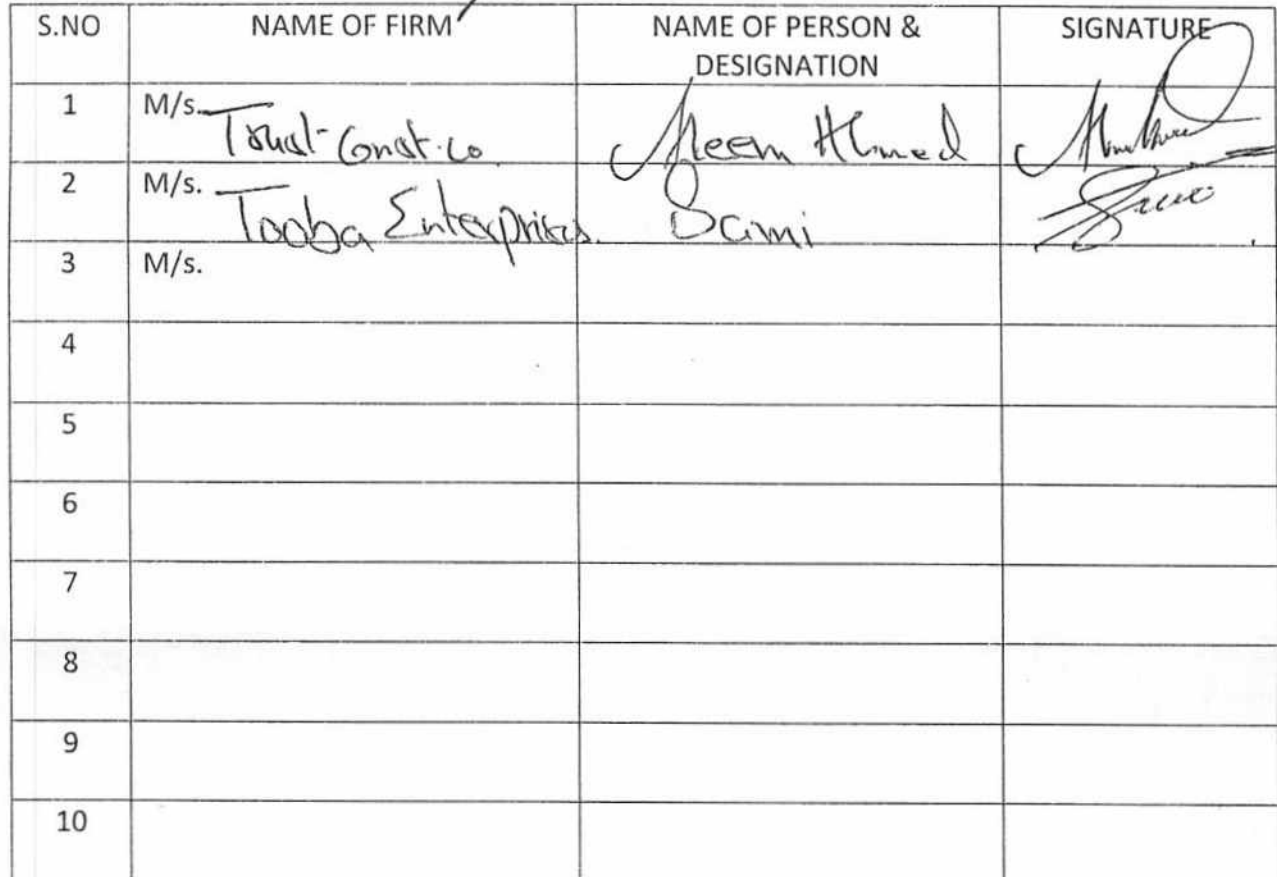 S.NO NAME OF FIRM NAME OF PERSON & DESIGNATION SIGNATURE
1 M/s. Const. Co Ahmed
2 M/s. Tooba Enterprises. Sami
3 M/s.
4
5
6
7
8
9
10